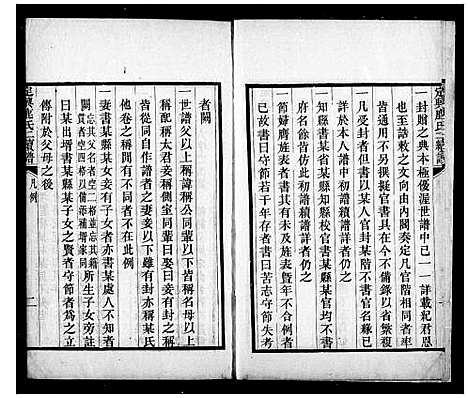 定興鹿氏二續譜
一封贈之典本極優渥世譜中已一一詳載紀君恩
也至誥敕之文向由內閣奏定凡官階一人者詞句
皆通用不另撰擬官書具在今不備錄以省繁複
一凡受封者但書以某人官封某階不書官名緣已
詳於本人譜中初譜續譜詳者仍之
一凡官某省知縣書某省知縣校官書某縣官均不書
府名餘皆仿此初譜續譜詳者仍之
一節婦膺旌者書其有未及旌表暨年不合例者
已故書曰苦節若干年存者書曰苦志守節未考
者闕
一世譜父以上稱諱稱公同輩以下皆稱名母以上
稱配稱太君妾稱側室同輩曰娶曰妾有封之稱
皆從同自作譜者之妻妾以下雖有封亦稱某氏
他卷之稱間有不同者不在此例
一妻書某縣某女妾有子女者亦書某處人不知者
闕忘其父名者空二格並忘其籍者空四格以備添補增家同所生子女旁註
曰某出壻書某縣某子女之賢者守節者為之立
傳附於父母之後
定興鹿氏二續譜
凡例
二